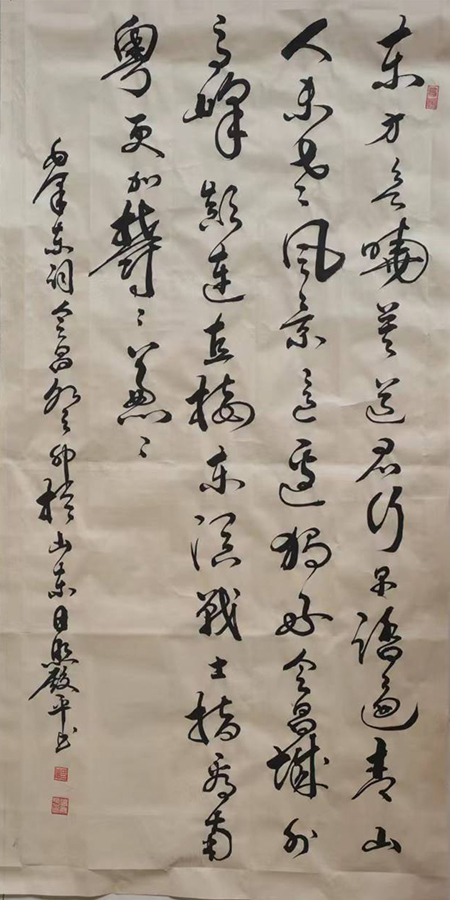 东方欲晓莫道君行早踏遍青山
人未老风景这边独好会昌城外
高峰颠连直接东溟戰士指看南
粤更加郁々葱々
毛泽东词会昌癸卯於山东日照殿平书